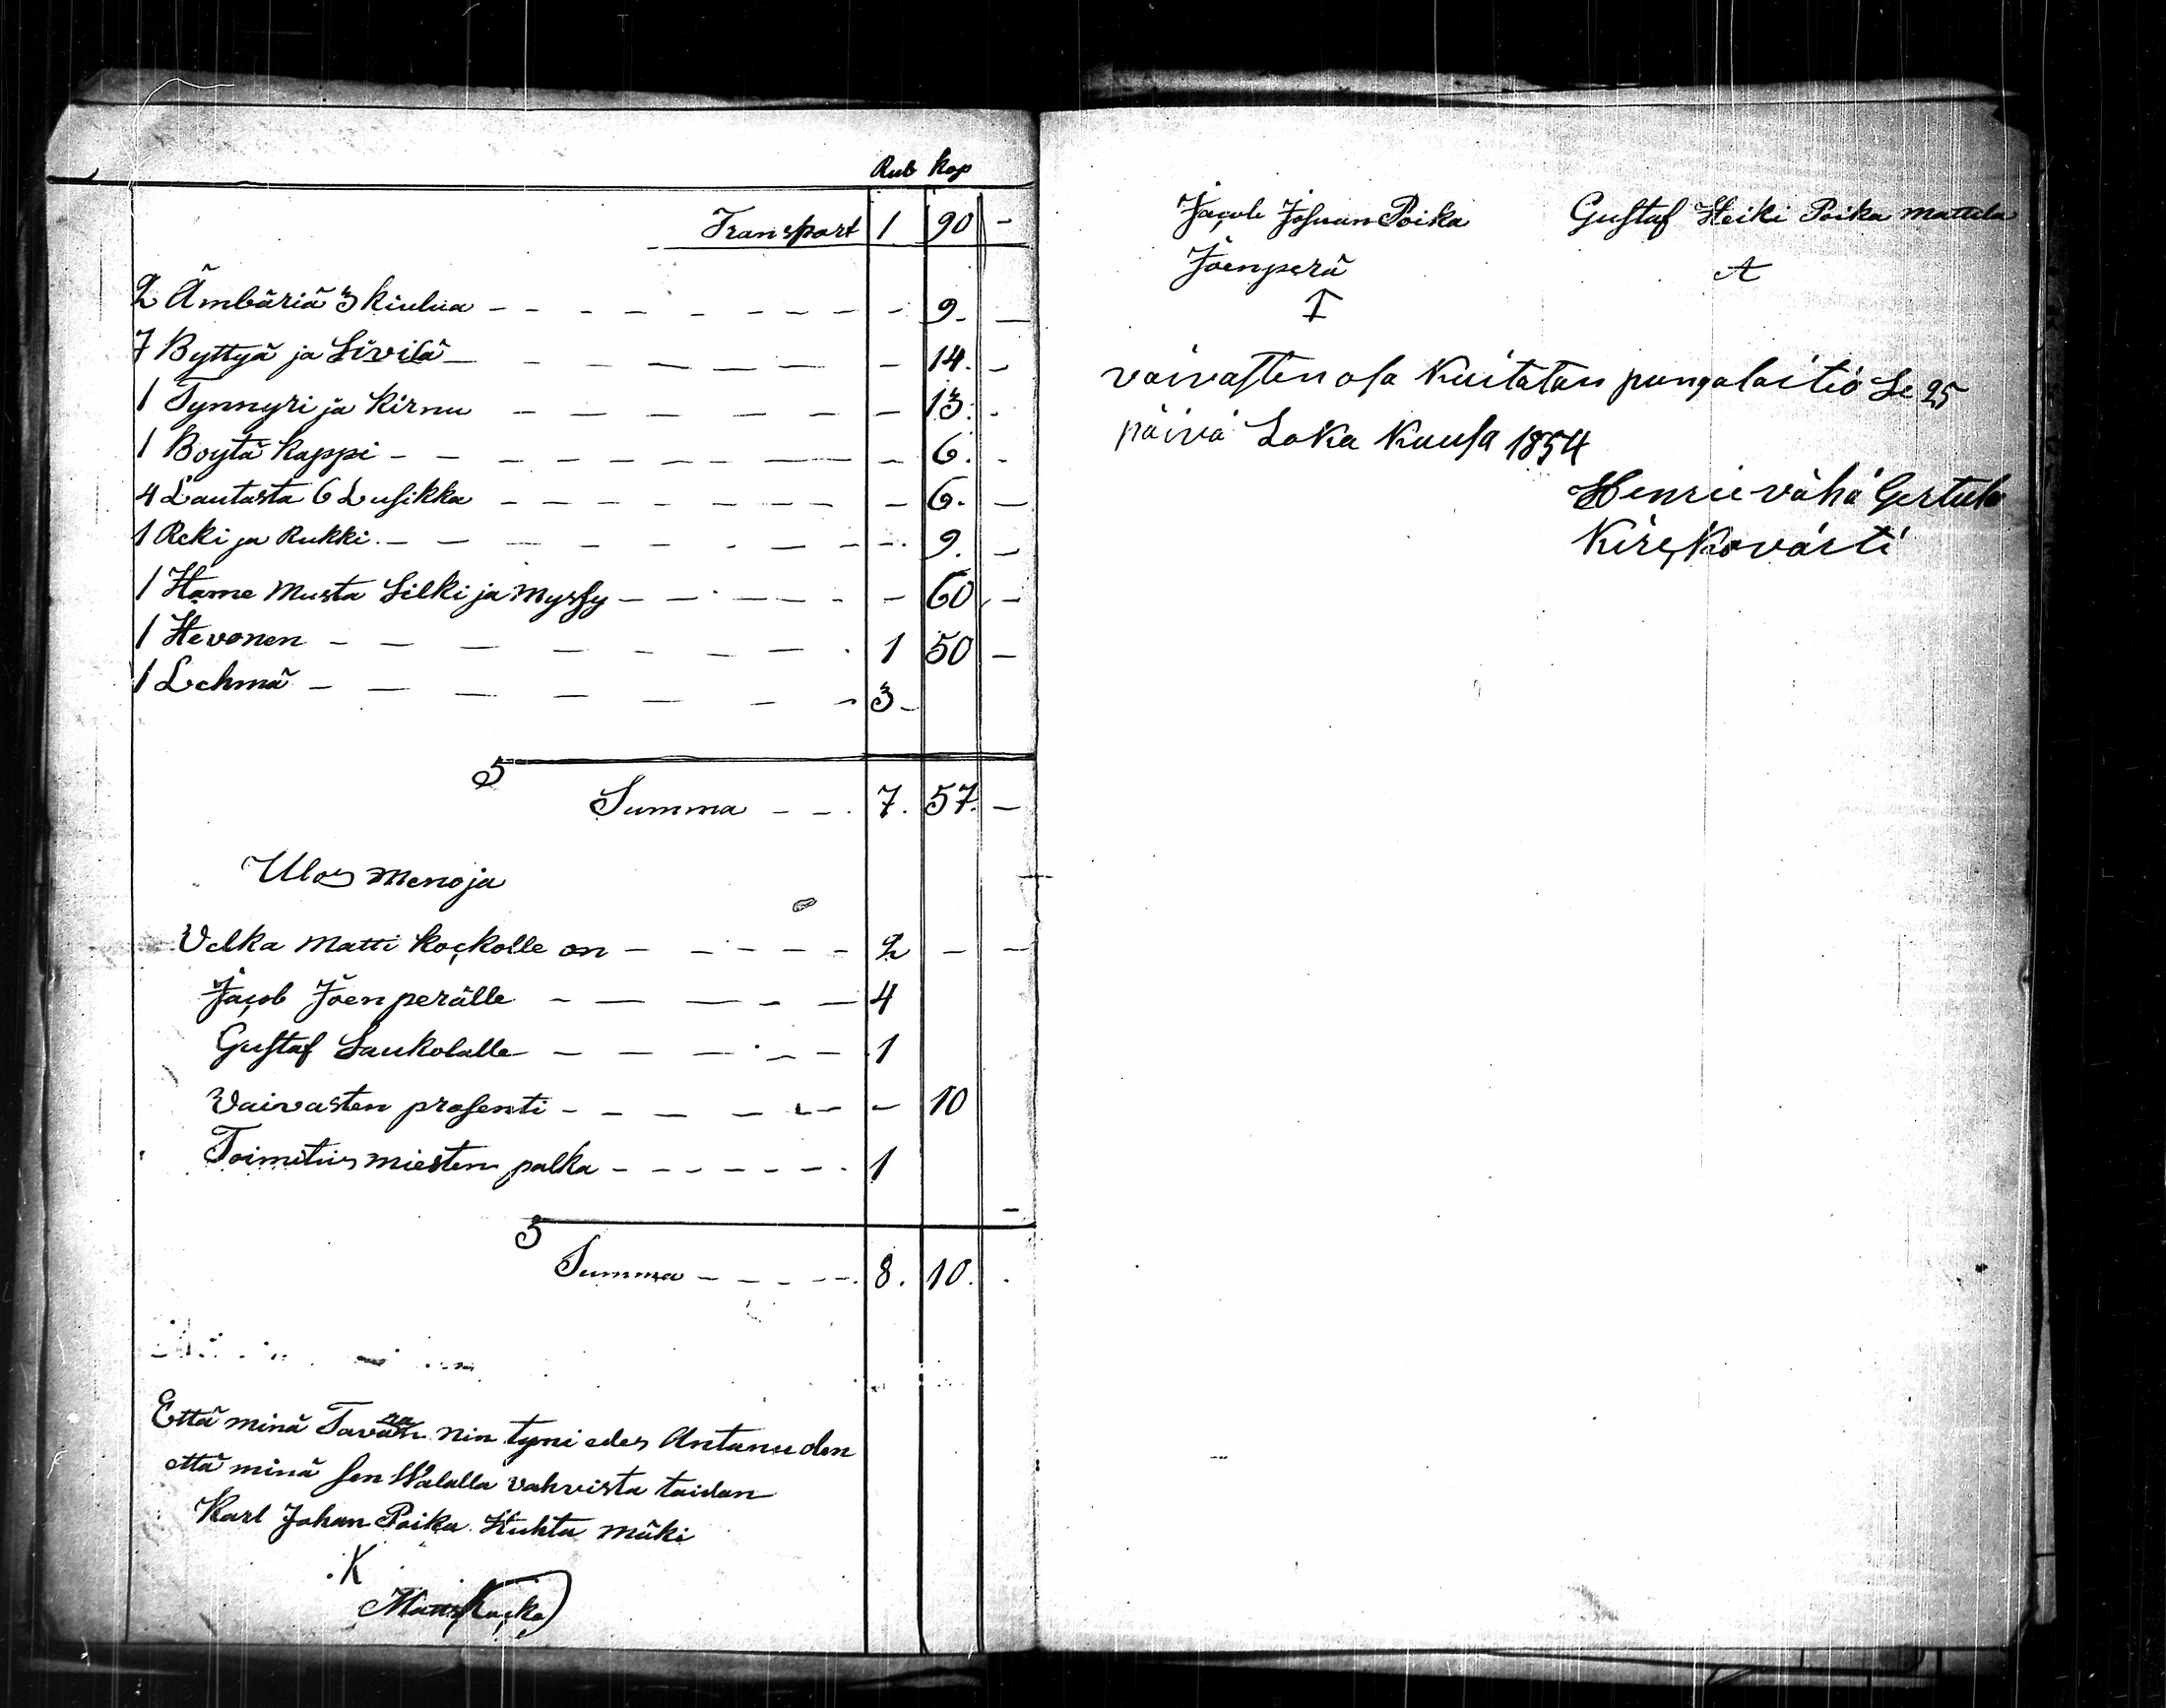 Rub Kop
Transport 1 90 -
2 Ämbäriä 3 kiulua - - - - 9. -
7 Byttyä ja Sivilä - - - - 14. -
1 Tynnyri ja Kirnu - - - - 13. -
1 Boytä Kappi - - - - 6. -
4 Lautasta 6 Lusikka - - - - 6. -
1 Reki ja Rukki - - - - 9. -
1 Hame Musta Silki ja Myssy - - - - 60 -
1 Hevonen - - - - 1 50 -
1 Lehmä - - - - 3 -
Summa - - 7. 57. -
Ulos menoja
Velka Matti Kockolle on - - - - 2 - -
Jacob Jöenperälle - - - - 4
Gustaf Laukolalle - - - - 1
Vaivasten prosenti - - - - 10
Toimitus miesten palka - - - - 1
Summa - - - - 8. 10.
Että minä Tavaran nin tyni edes Antanu olen
että minä sen Walalla vahvista taidan
Karl Johan Poika Huhta mäki
K
Matts Kocko
Jacob Johan Poika Gustaf Heiki Poika Mattila
Jöenperä A
vaivasten osa Kuitatan pungalaitiö Se 25
päivä Loka Kuusa 1854
Henric vähä Gertula